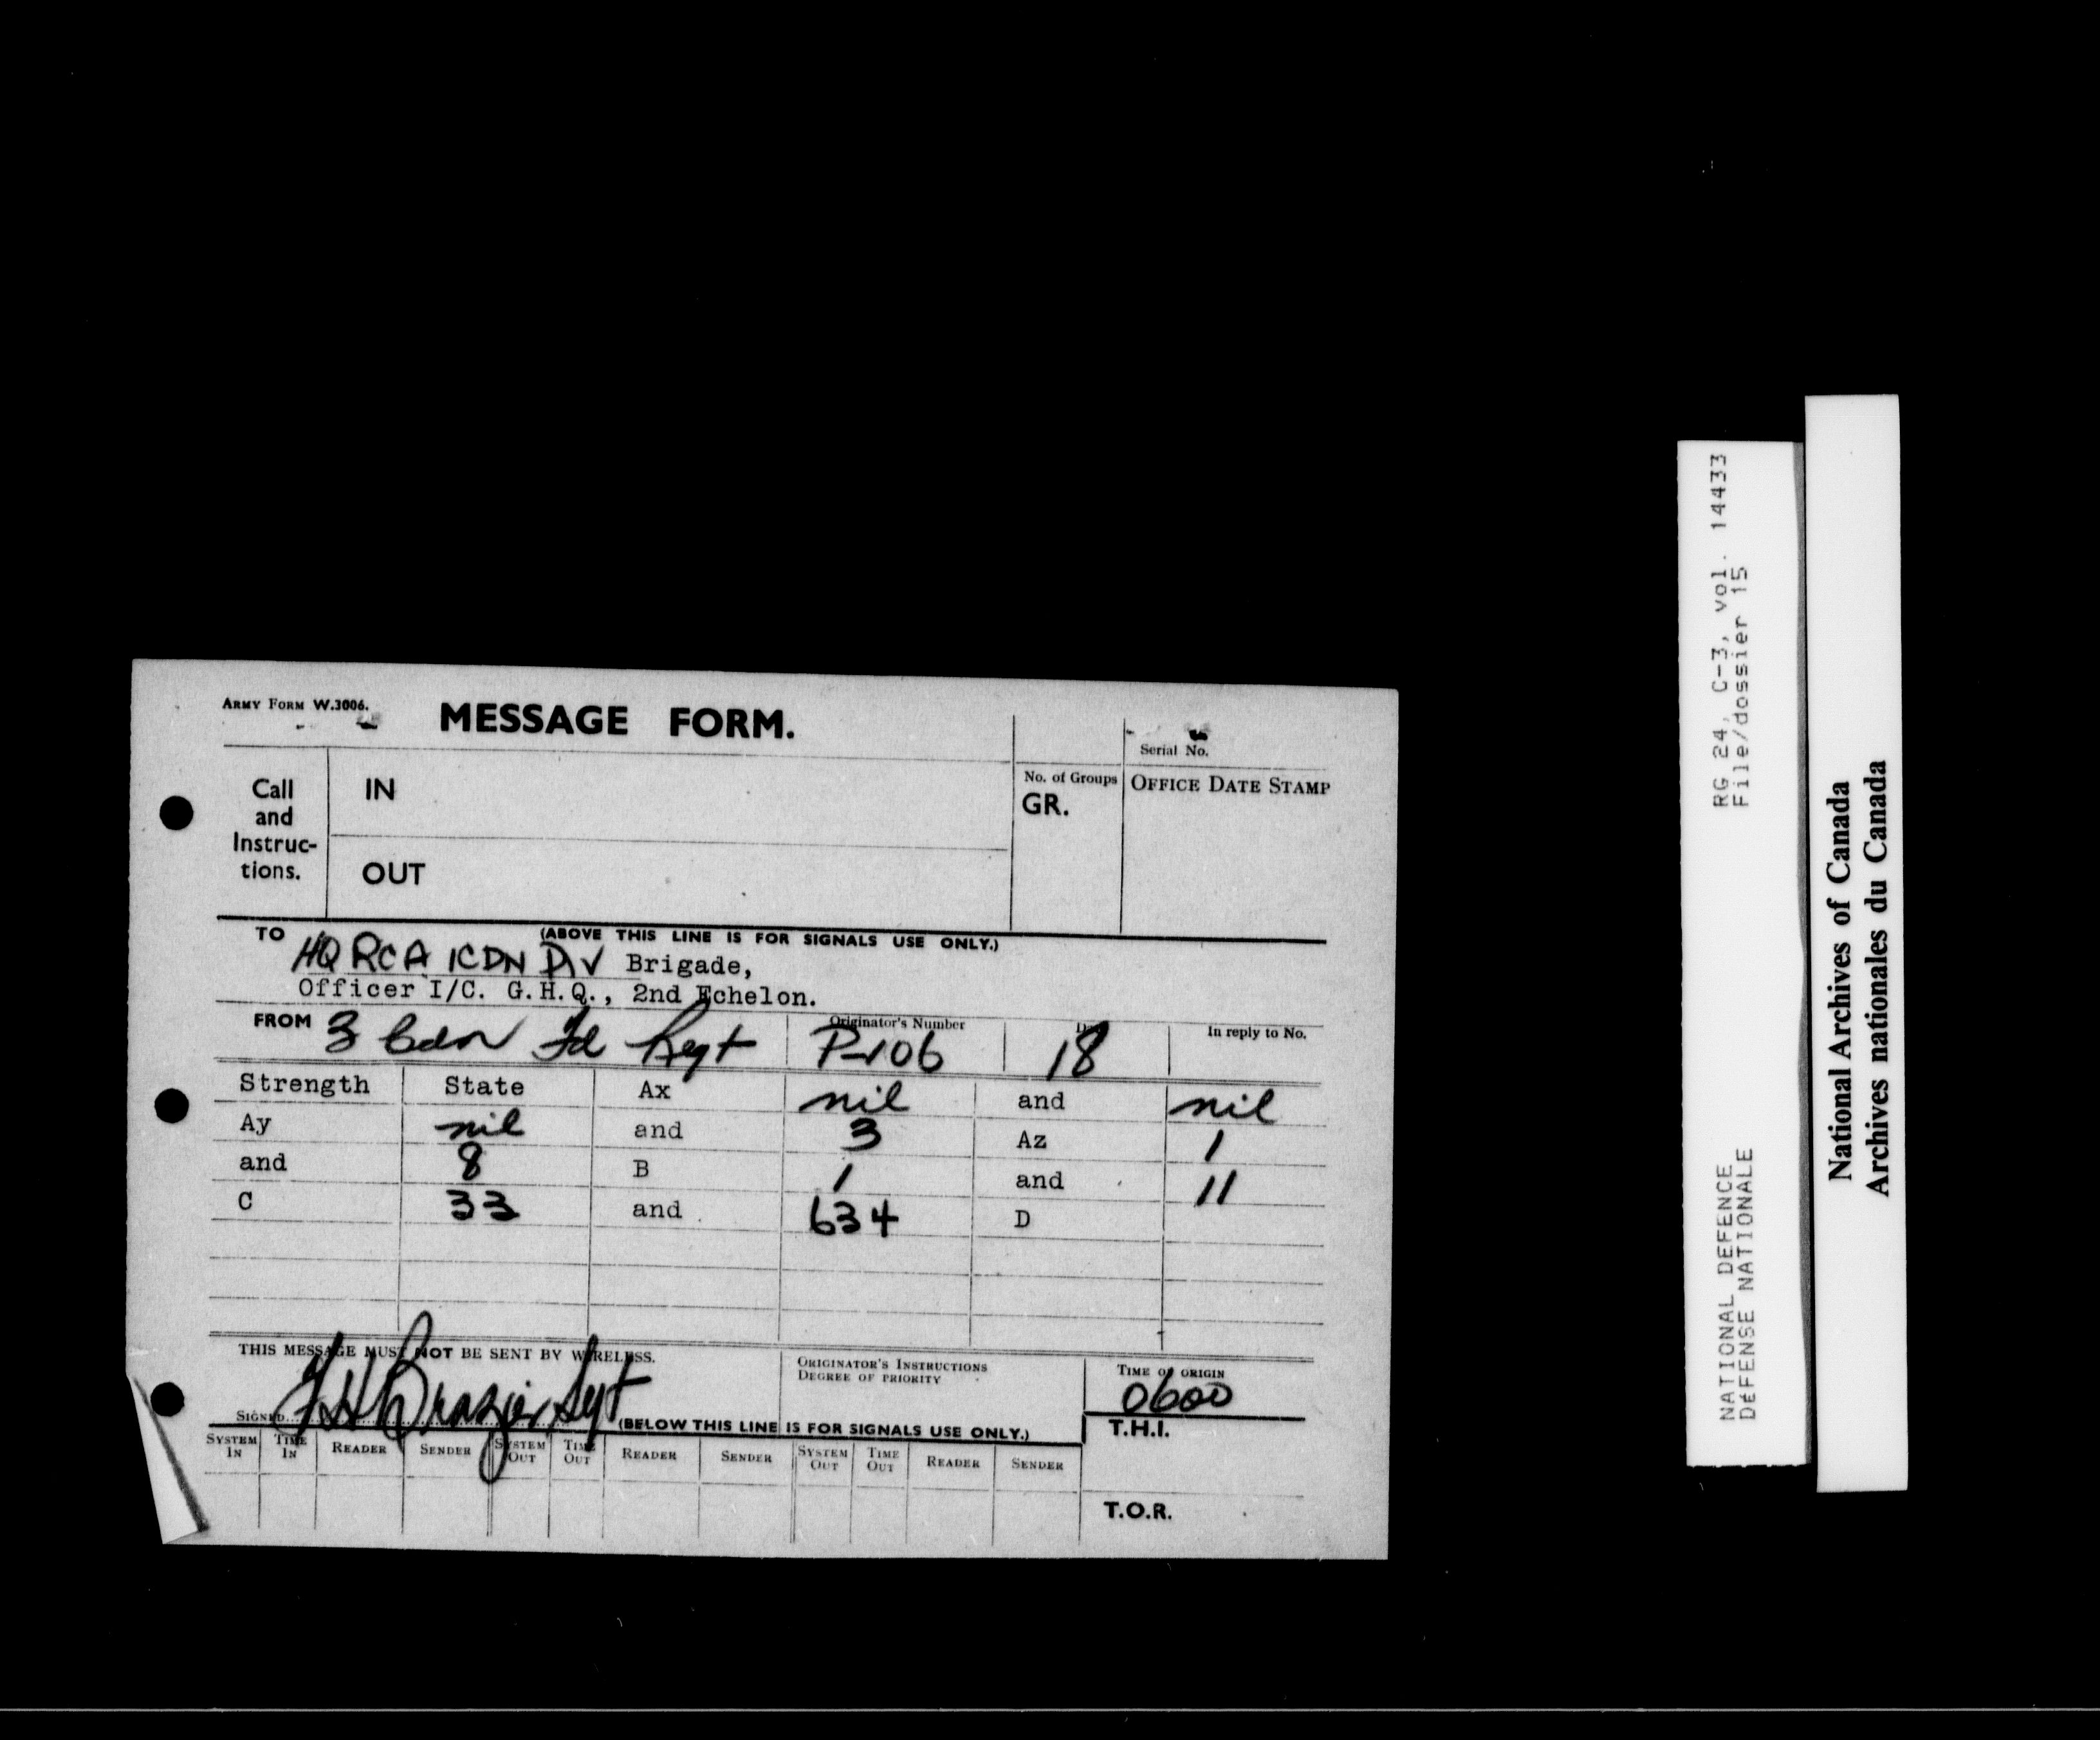 ARMY FORM W.3006.
MESSAGE FORM.
Serial No.
Call and Instruc-tions.
IN
OUT
No. of Groups
GR.
OFFICE DATE STAMP
(ABOVE THIS LINE IS FOR SIGNALS USE ONLY.)
TO HQ RCA 1CDN DIV Brigade,
Officer I/C. G.H.Q., 2nd Echelon.
FROM 3 Cdn Fd Regt Originator's Number P-106 18 In reply to No.
Strength State Ax nil and nil
Ay nil and 3 Az 1
and 8 B 1 and 11
C 33 and 634 D
THIS MESSAGE MUST NOT BE SENT BY WIRELESS.
ORIGINATOR'S INSTRUCTIONS
DEGREE OF PRIORITY
TIME OF ORIGIN
0600
SIGNED Brazier Sgt
(BELOW THIS LINE IS FOR SIGNALS USE ONLY.)
T.H.I.
SYSTEM IN TIME IN READER SENDER SYSTEM OUT TIME OUT READER SENDER SYSTEM OUT TIME OUT READER SENDER
T.O.R.
RG 24, C-3, vol. 14433
File/dossier 15
NATIONAL DEFENCE
DéFENSE NATIONALE
National Archives of Canada
Archives nationales du Canada